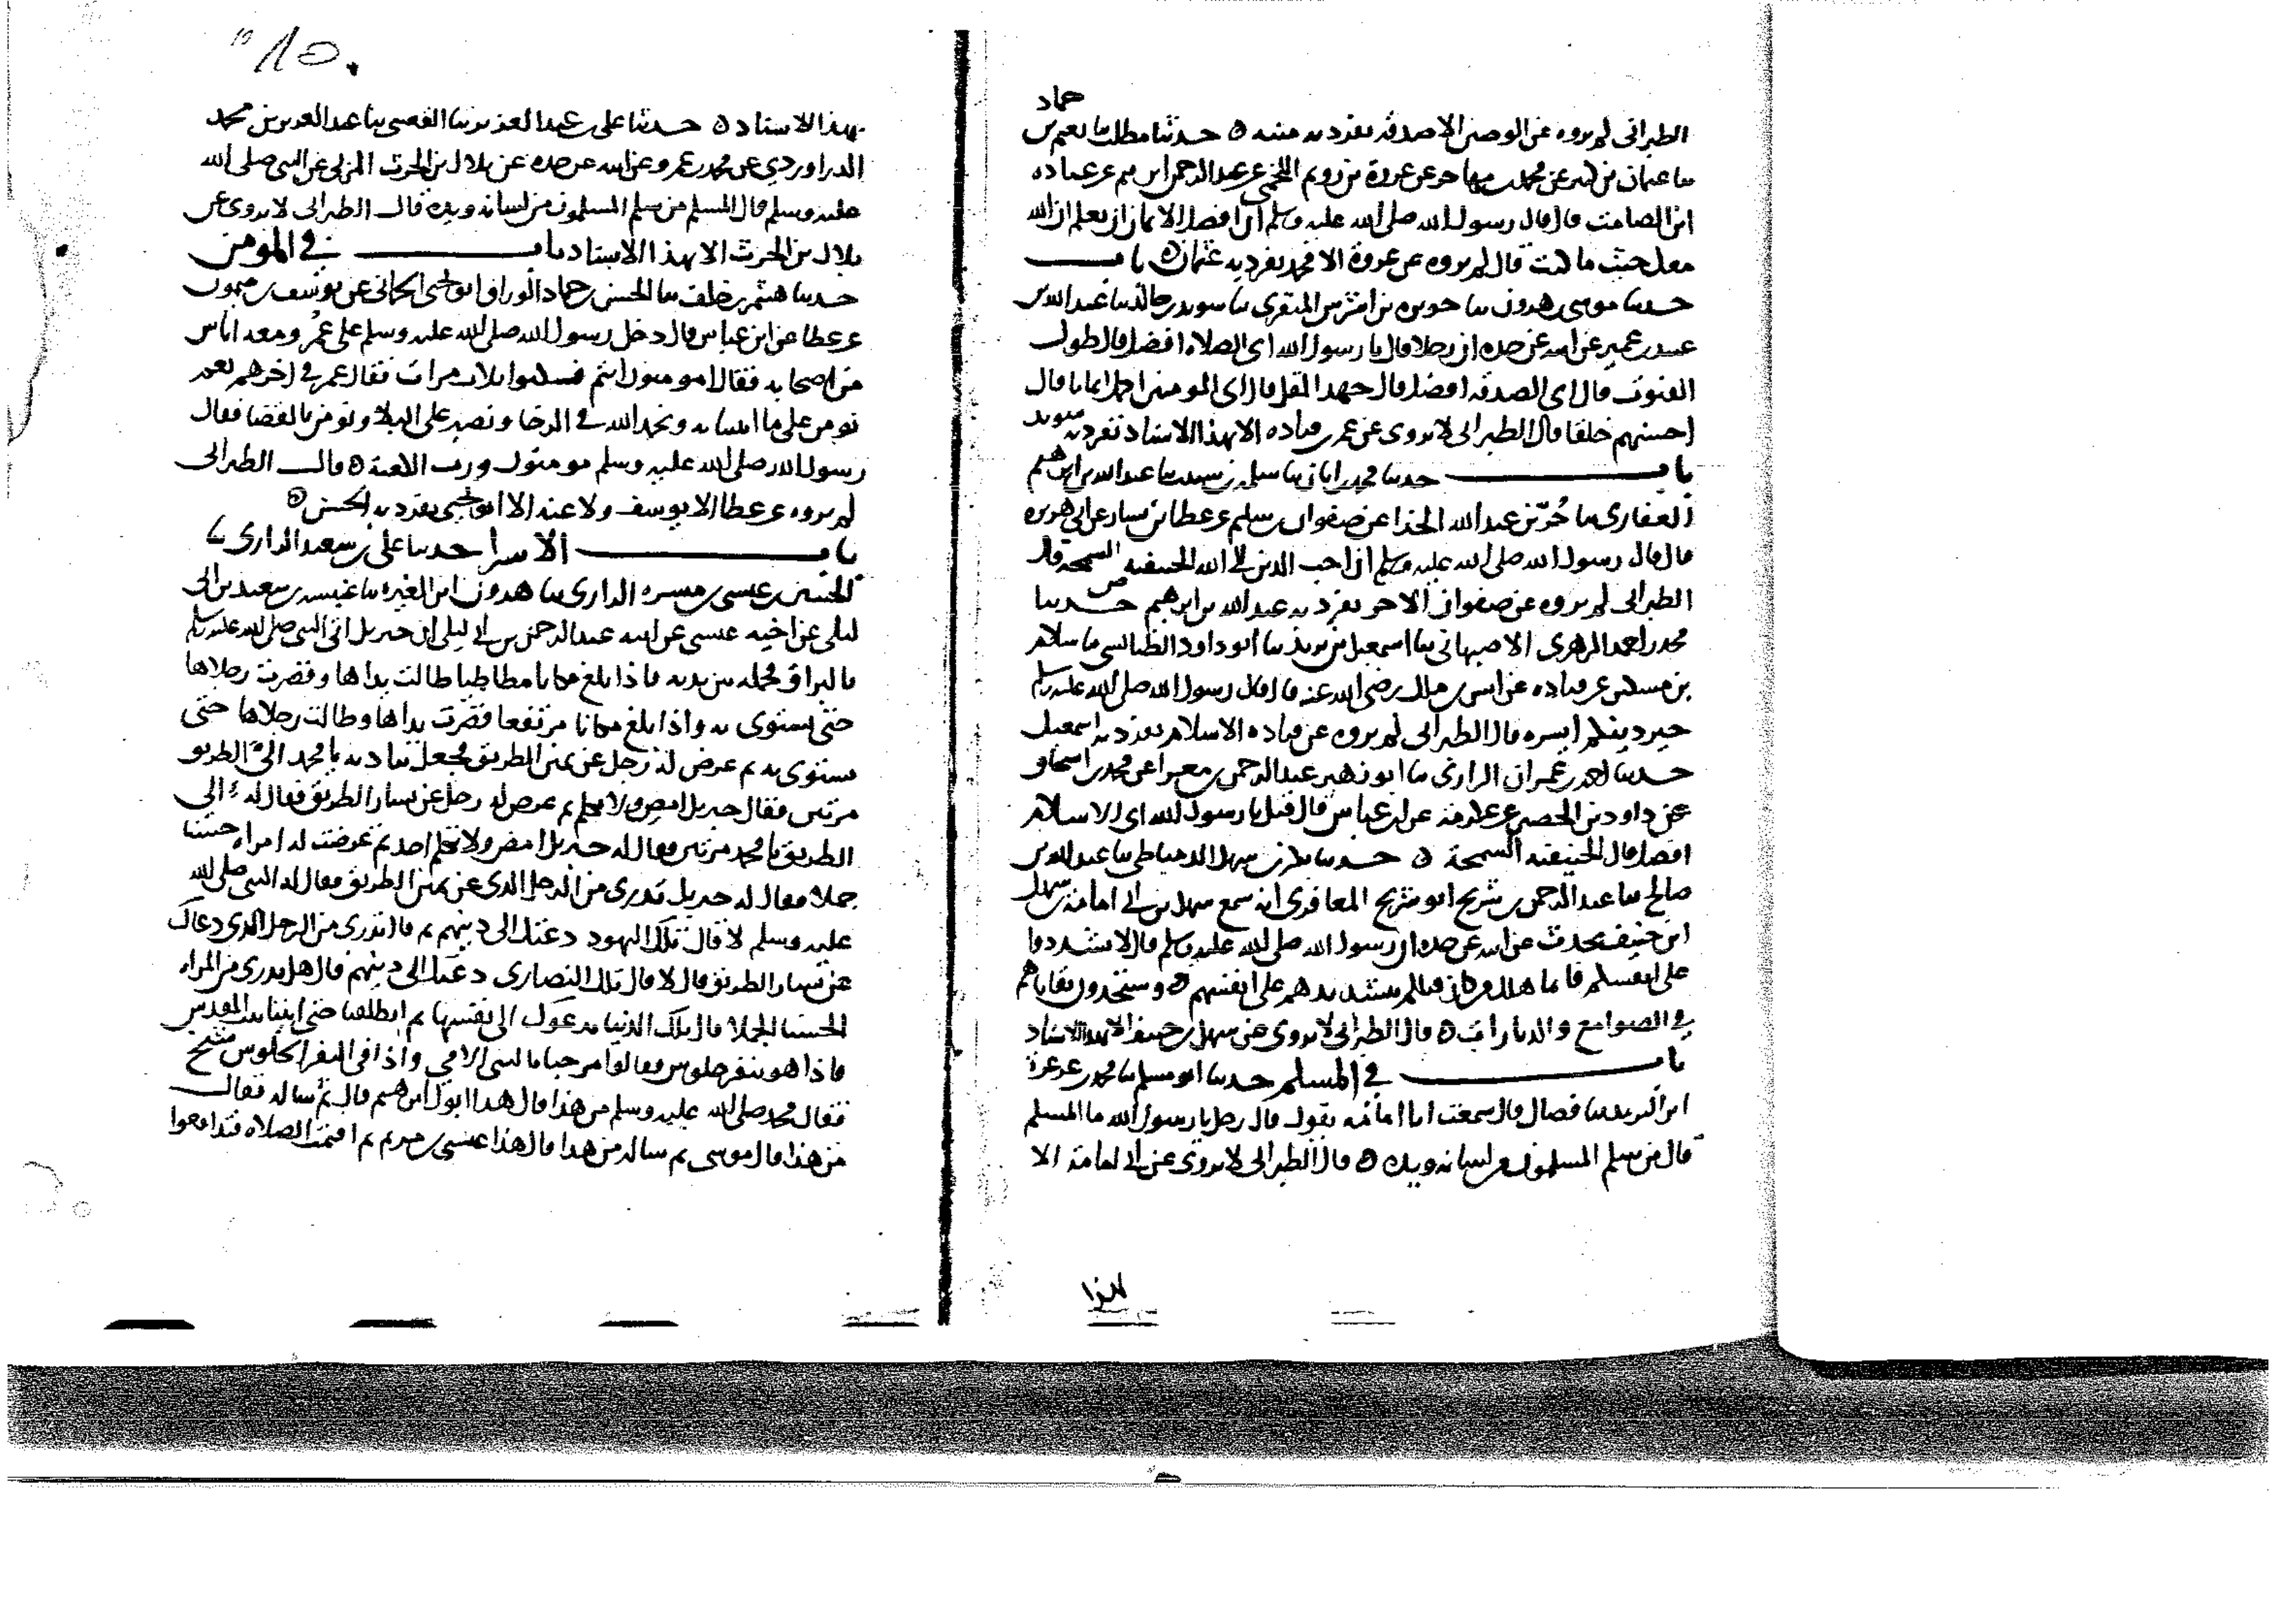 حماد
الطبراني لم يروه عن الوضين الا صدقه تفرد به منبه ه حدثنا مطلب نا نعيم بن
نا عثمان بن كثير عن محمد بن مهاجر عن عروة بن رويم اللخمي عن عبد الرحمن ابن غنم عن عباده
ابن الصامت قال قال رسول الله صلى الله عليه وسلم ان افضل الايمان ان تعلم ان الله
معك حيث ما كنت قال لم يروه عن عروة الا محمد تفرد به عثمان ه باب
حدثنا موسى هرون نا حوثره بن اشرس المنقري نا سويد ابو حاتم نا عبد الله بن
عبيد بن عمير عن ابيه عن جده ان رجلا قال يا رسول الله اي الصلاه افضل قال طول
القنوت قال اي الصدقه افضل قال جهد المقل قال اي المومنين اكمل ايمانا قال
احسنهم خلقا قال الطبراني لا يروى عن عمير بن قتاده الا بهذا الاسناد تفرد به سويد
باب حدثنا محمد بن ابان نا سلمه بن شبيب نا عبد الله بن ابرهيم
الغفاري نا حر بن عبد الله الحذا عن صفوان بن سليم عن عطا بن يسار عن ابي هريره
قال قال رسول الله صلى الله عليه وسلم ان احب الدين الى الله الحنيفيه السمحة قال
الطبراني لم يروه عن صفوان الا حر تفرد به عبد الله بن ابرهيم حدثنا
محمد بن احمد الزهري الاصبهاني نا اسمعيل بن يزيد نا ابو داود الطيالسي نا سلام
بن مسكين عن قتاده عن انس بن ملك رضي الله عنه قال قال رسول الله صلى الله عليه وسلم
خير دينكم ايسره قال الطبراني لم يروه عن قتاده الا سلام تفرد به اسمعيل
حدثنا احمد بن عمران الرازي نا ابو زهير عبد الرحمن بن مغرا عن محمد بن اسحاق
عن داود بن الحصين عن عكرمة عن ابن عباس قال قيل يا رسول الله اي الاسلام
افضل قال الحنيفيه السمحة ه حدثنا بكر بن سهل الدمياطي نا عبد الله بن
صالح نا عبد الرحمن بن شريح ابو شريح المعافري انه سمع سهل بن ابي امامة بن سهل
ابن حنيف يحدث عن ابيه عن جده ان رسول الله صلى الله عليه وسلم قال لا تشددوا
على انفسكم فانما هلك من كان قبلكم بتشديدهم على انفسهم ه وستجدون بقاياهم
في الصوامع والديارات ه قال الطبراني لا يروى عن سهل بن حنيف الا بهذا الاسناد
باب في المسلم حدثنا ابو مسلم نا محمد بن عرعرة
ابن البرند نا فضال قال سمعت ابا امامه يقول قال رجل يا رسول الله ما المسلم
قال من سلم المسلمون من لسانه ويده ه قال الطبراني لا يروى عن ابي امامة الا
بهذا
بهذا الاسناد ه حدثنا علي بن عبد العزيز نا القعنبي نا عبد العزيز بن محمد
الدراوردي عن محمد بن عمرو عن ابيه عن جده عن بلال بن الحرث المزني عن النبي صلى الله
عليه وسلم قال المسلم من سلم المسلمون من لسانه ويده قال الطبراني لا يروى عن
بلال بن الحرث الا بهذا الاسناد باب في المومن
حدثنا هيثم بن خلف نا الحسن بن حماد الوراق ابو يحيى الحماني عن يوسف بن ميمون
عن عطا عن ابن عباس قال دخل رسول الله صلى الله عليه وسلم على عمر ومعه اناس
من اصحابه فقال امومنون انتم فسكتوا ثلاث مرات فقال عمر في اخرهم نعم
نومن على ما اتيتنا به ونحمد الله في الرخا ونصبر على البلا ونومن بالقضا فقال
رسول الله صلى الله عليه وسلم مومنون ورب الكعبة ه قال الطبراني
لم يروه عن عطا الا يوسف ولا عنه الا ابو يحيى تفرد به الحسن ه
باب الاسرا حدثنا علي بن سعيد الرازي نا
الحسين بن عيسى بن ميسره الرازي نا هرون ابن المغيره نا عنبسه بن سعيد عن ابن ابي
ليلى عن اخيه عيسى عن ابيه عبد الرحمن بن ابي ليلى ان جبريل اتى النبي صلى الله عليه وسلم
بالبراق فحمله بين يديه فاذا بلغ مكانا مطاطيا طالت يداها وقصرت رجلاها
حتى يستوى به واذا بلغ مكانا مرتفعا قصرت يداها وطالت رجلاها حتى
يستوى به ثم عرض له رجل عن يمين الطريق فجعل يناديه يا محمد الى الطريق
مرتين فقال جبريل امض ولا تكلم ثم عرض له رجل عن يسار الطريق فقال له الى
الطريق يا محمد مرتين فقال له جبريل امض ولا تكلم احد ثم عرضت له امراه حسنا
جملا فقال له جبريل تدري من الرجل الذي عن يمين الطريق فقال له النبي صلى الله
عليه وسلم لا قال تلك اليهود دعتك الى دينهم ثم قال تدري من الرجل الذي دعاك
عن يسار الطريق قال لا قال تلك النصارى دعتك الى دينهم قال هل تدري من المراه
الحسنا الجملا قال تلك الدنيا تدعوك الى نفسها ثم انطلقنا حتى اتينا بيت المقدس
فاذا هو بنفر جلوس فقالوا مرحبا بالنبي الامي واذا في النفر الجلوس شيخ
فقال محمد صلى الله عليه وسلم من هذا قال هذا ابوك ابرهيم قال ثم ساله فقال
من هذا قال موسى ثم ساله من هذا قال هذا عيسى بن مريم ثم اقيمت الصلاه فتدافعوا